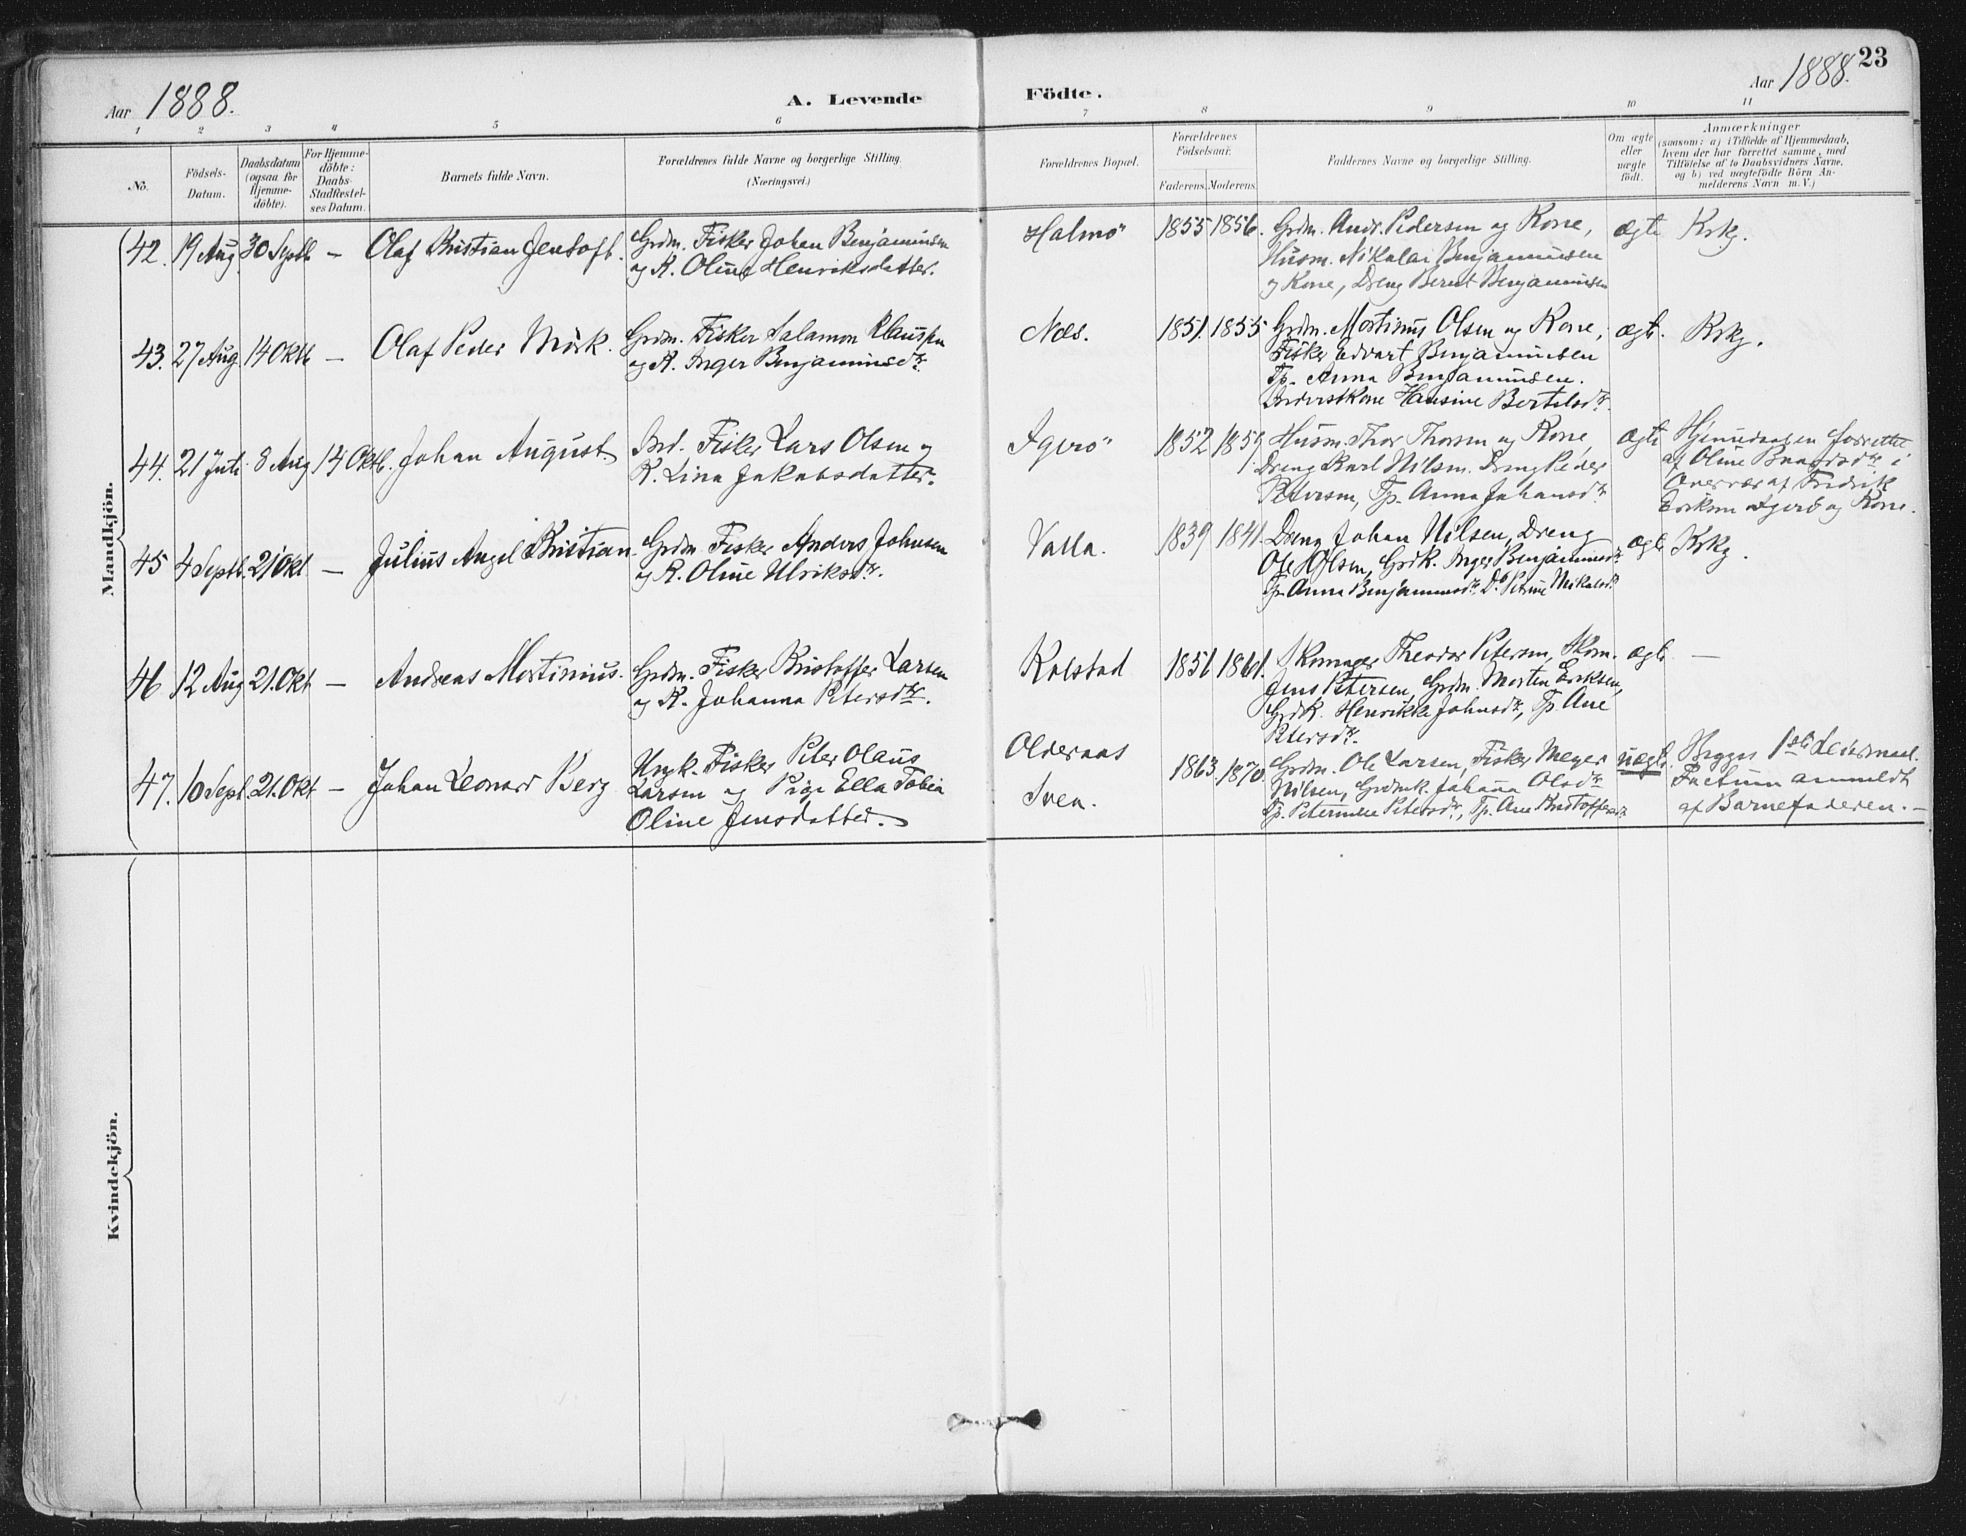 Aar 1888.
A. Levende Födte.
Aar 1888.
23
1 2 3 4 5 6 7 8 9 10 11
No.
Födsels-
Datum.
Daabsdatum
(ogsaa for
Hjemme-
döbte).
For Hjemme-
döbte:
Daabs-
Stadfæstel-
ses Datum.
Barnets fulde Navn.
Forældrenes fulde Navne og borgerlige Stilling.
(Næringsvei.)
Forældrenes Bopæl.
Forældrenes
Födselsaar.
Faderens. Moderens.
Faddernes Navne og borgerlige Stilling.
Om ægte
eller
uægte
födt.
Anmærkninger
(saasom: a) i Tilfælde af Hjemmedaab,
hvem der har forrettet samme, med
Tilföielse af to Daabsvidners Navne,
og b) ved uægtefödte Börn An-
melderens Navn m. V.)
Mandkjön.
42. 19 Aug. 30 Septb. — Olaf Kristian Jentoft.
Grdm. Fisker Johan Benjaminsen
og K. Oline Henriksdatter.
Halmö 1855 1856.
Grdm. Andr. Pedersen og Kone,
Husm. Nikolai Benjaminsen
og Kone, Dreng Bernt Benjaminsen
ægte Krkg.
43. 27 Aug 14 Oktb — Olaf Peder Mörk.
Grdm. Fisker Salamon Klausen
og K. Inger Benjaminsdr.
Næs. 1851. 1855
Grdm. Mortinus Olsen og Kone,
Fisker Edvart Benjaminsen
Tp. Anna Benjaminsen.
Hansine Bertelsdr.
ægte. Krkg.
44. 21 Juli 8 Aug 14 Oktb. Johan August
Ind. Fisker Lars Olsen og
K. Lina Jakobsdatter.
Igerö 1852 1859.
Husm. Thor Thorsen og Kone,
Dreng Karl Nilsen. Dreng Peder
Petersen, Tp. Anna Johansdr.
ægte
Hjemmedaaben forrettet
af Oline i
Overvær af Fredrik
Eriksen Igerö og Kone.
45 4 Septb. 21 Okt — Julius Angel Kristian.
Grdm. Fisker Anders Johnsen
og K. Oline Ulriksdr.
Valla. 1839 1841.
Dreng Johan Nilsen, Dreng
Ole Olsen, Grdk. Inger Benjaminsdr.
Tp. Anna Benjaminsdr. Do Petrine Mikalsdr
ægte Krkg.
46 12 Aug 21. Okt — Andreas Mortinius.
Grdm. Fisker Kristoffer Larsen
og K. Johanna Petersdtr.
Kolstad 1851 1861.
Skomager Theodor Petersen, Skom.
Jens Petersen, Grdm. Morten Eriksen,
Grdk. Henrikke Johnsdr, Tp. Ane
Petersdr.
ægte —
47. 10 Sept. 21. Okt — Johan Leonard Berg
Ungk. Fisker Peter Olaus
Larsen og Pige Ella Tobia
Oline Jensdatter.
Olderaas
Sven.
1863. 1870.
Grdm. Ole Larsen, Fisker Meyer
Nilsen, Grdmk. Johanna Olsdr
Tp. Peterine Petersdr, Tp. Ane Kristoffersdr
uægte
Begges 1ste Leiermaal.
Factum anmeldt
af Barnefaderen. —
Kvindekjön.